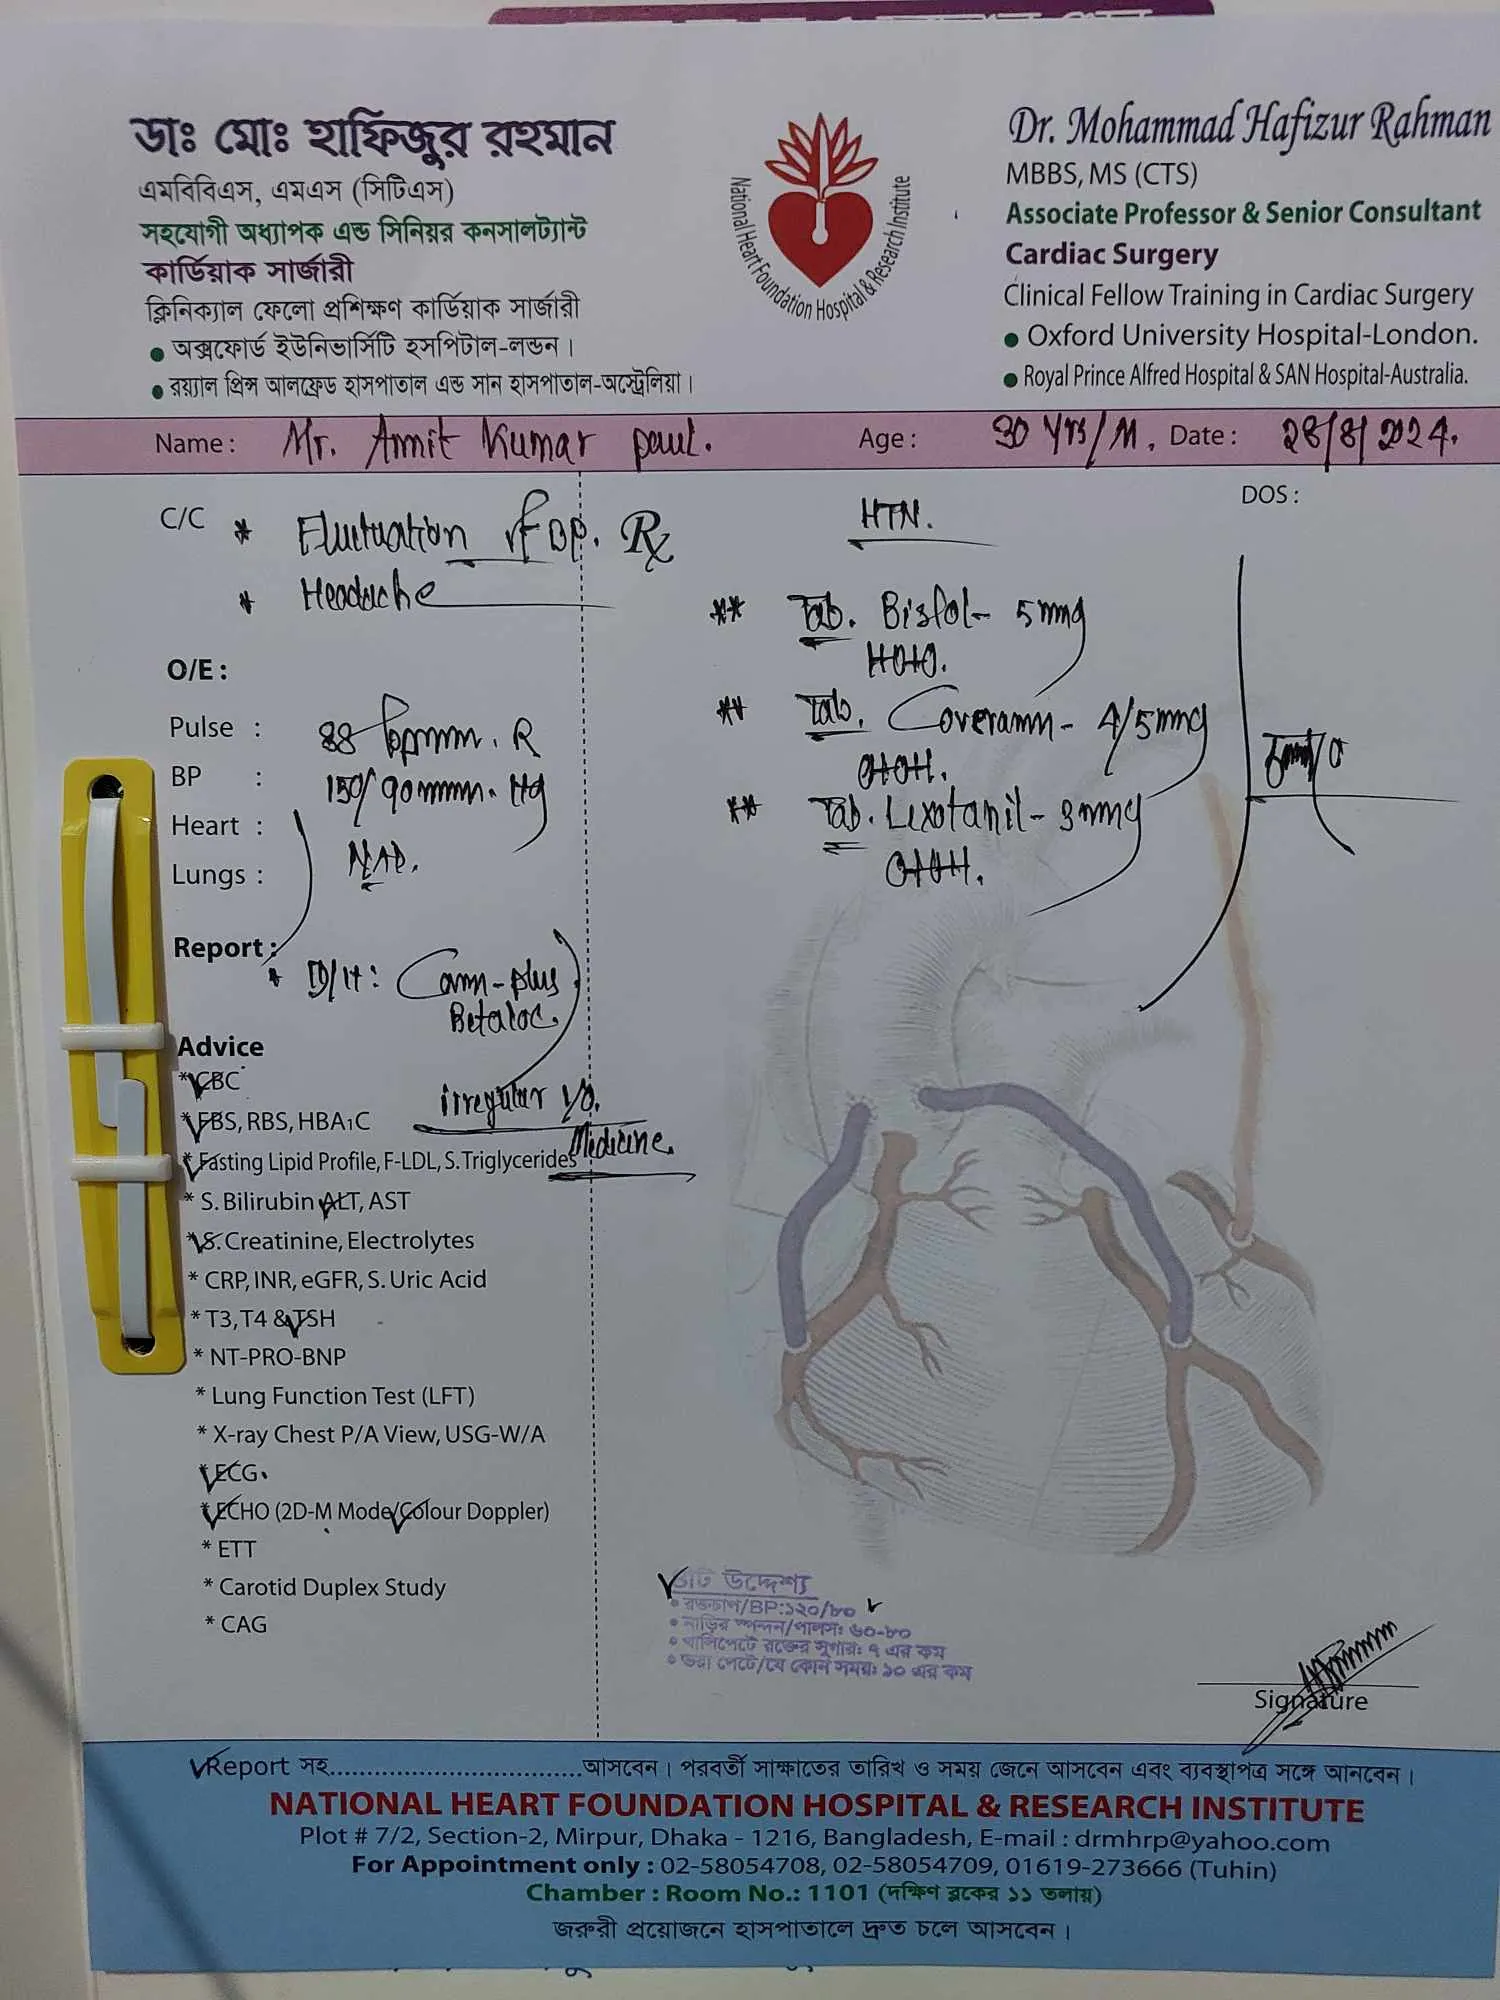 ডাঃ মোঃ হাফিজুর রহমান
এমবিবিএস, এমএস (সিটিএস)
সহযোগী অধ্যাপক এন্ড সিনিয়র কনসালট্যান্ট
কার্ডিয়াক সার্জারী
ক্লিনিক্যাল ফেলো প্রশিক্ষণ কার্ডিয়াক সার্জারী
● অক্সফোর্ড ইউনিভার্সিটি হসপিটাল-লন্ডন।
● রয়্যাল প্রিন্স আলফ্রেড হাসপাতাল এন্ড সান হাসপাতাল-অস্ট্রেলিয়া।
National Heart Foundation Hospital & Research Institute
Dr. Mohammad Hafizur Rahman
MBBS, MS (CTS)
Associate Professor & Senior Consultant
Cardiac Surgery
Clinical Fellow Training in Cardiac Surgery
● Oxford University Hospital-London.
● Royal Prince Alfred Hospital & SAN Hospital-Australia.
Name : Mr. Amit Kumar paul. Age : 30 Yrs/M. Date : 28/8/2024.
C/C * Fluctuation of BP.
* Headache
O/E :
Pulse : 88 bpm. R
BP : 150/90 mm. Hg
Heart :
NAD.
Lungs :
Report :
* D/H: Cam-plus
Betaloc.
irregular
Medicine.
Advice
* CBC
* FBS, RBS, HBA1C
* Fasting Lipid Profile, F-LDL, S. Triglycerides
* S. Bilirubin ALT, AST
* S. Creatinine, Electrolytes
* CRP, INR, eGFR, S. Uric Acid
* T3, T4 & TSH
* NT-PRO-BNP
* Lung Function Test (LFT)
* X-ray Chest P/A View, USG-W/A
* ECG
* ECHO (2D-M Mode/Colour Doppler)
* ETT
* Carotid Duplex Study
* CAG
Rx
HTN.
DOS :
** Tab. Bisfol- 5mg
** Tab. Coveram- 4/5mg
** Tab. Lexotanil- 3mg
উদ্দেশ্য
• রক্তচাপ/BP:১২০/৮০
• নাড়ির স্পন্দন/পালস: ৬০-৮০
• খালিপেটে রক্তের সুগার: ৭ এর কম
• ভরা পেটে/যে কোন সময়: ১০ এর কম
Signature
Report সহ.................................আসবেন। পরবর্তী সাক্ষাতের তারিখ ও সময় জেনে আসবেন এবং ব্যবস্থাপত্র সঙ্গে আনবেন।
NATIONAL HEART FOUNDATION HOSPITAL & RESEARCH INSTITUTE
Plot # 7/2, Section-2, Mirpur, Dhaka - 1216, Bangladesh, E-mail : drmhrp@yahoo.com
For Appointment only : 02-58054708, 02-58054709, 01619-273666 (Tuhin)
Chamber : Room No.: 1101 (দক্ষিণ ব্লকের ১১ তলায়)
জরুরী প্রয়োজনে হাসপাতালে দ্রুত চলে আসবেন।